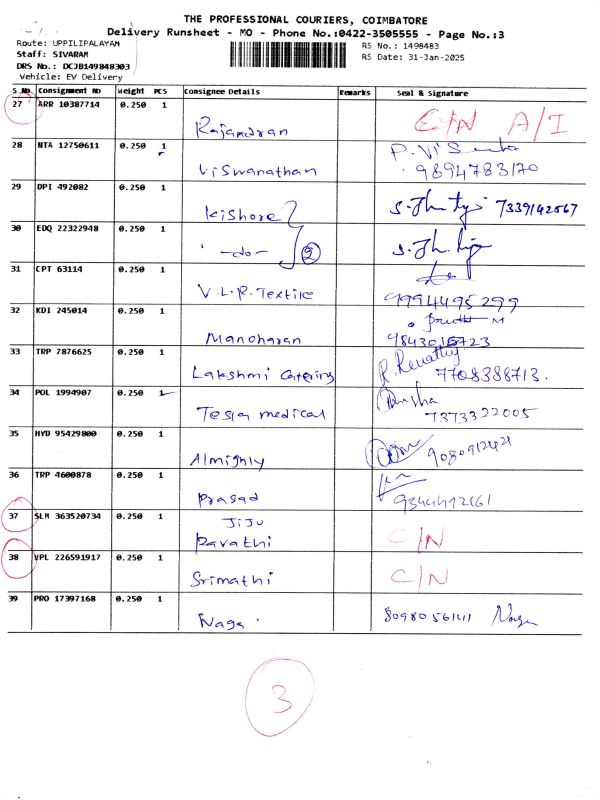 THE PROFESSIONAL COURIERS, COIMBATORE
Delivery Runsheet - MO - Phone No.:0422-3505555 - Page No.:3
Route: UPPILIPALAYAM
Staff: SIVARAM
DRS No.: DCJB149848303
Vehicle: EV Delivery
RS No.: 1498483
RS Date: 31-Jan-2025
S No Consignment No Weight PCS Consignee Details Remarks Seal & Signature
27 ARR 10387714 0.250 1 Rajandran C/N A/I
28 NTA 12750611 0.250 1 Viswanathan 9894783170
29 DPI 492082 0.250 1 Kishore 7339142567
30 EDQ 22322948 0.250 1 -do- 2
31 CPT 63114 0.250 1 V.L.R. Textile 9994495299
32 KDI 245014 0.250 1 Manoharan 9843015723
33 TRP 7876625 0.250 1 Lakshmi Catering R. Revathy 7708388713.
34 POL 1994907 0.250 Tesla medical 7373322005
35 HYD 95429800 0.250 1 Almighly
36 TRP 4600878 0.250 1 Prasad
37 SLM 363520734 0.250 1 JiJu
Parathi C/N
38 VPL 226591917 0.250 1 Srimathi C/N
39 PRO 17397168 0.250 1 Naga. 8098056141 Naga
3